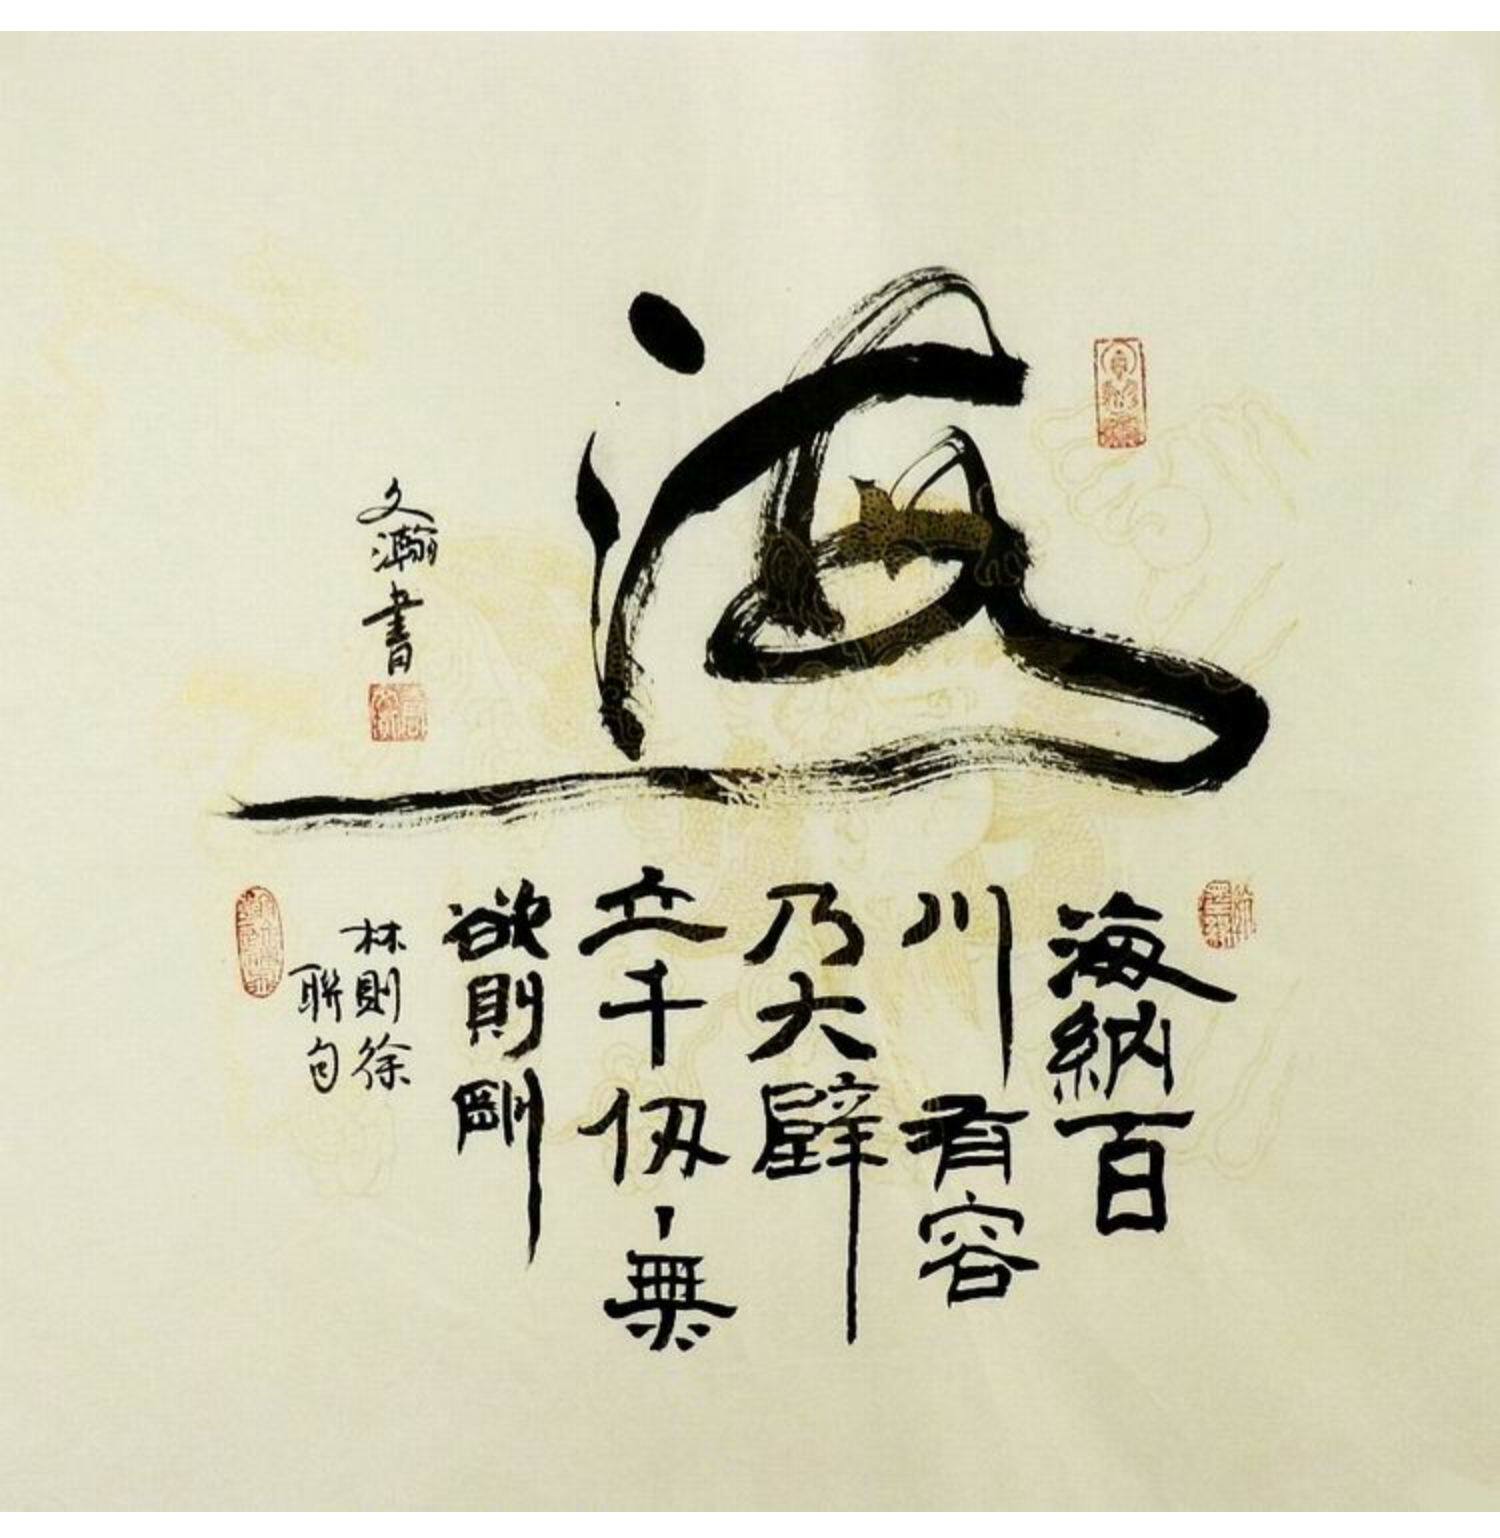 海
文瀚書
海納百
川有容
乃大壁
立千仞無
欲則剛
林則徐
聯句